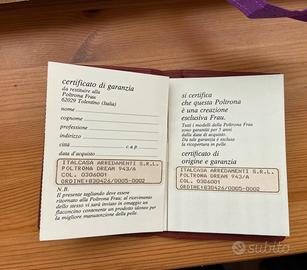 certificato di garanzia
da restituire alla
Poltrona Frau
62029 Tolentino (Italia)
nome
cognome
professione
indirizzo
città c a p
data d'acquisto
ITALCASA ARREDAMENTI S.R.L.
POLTRONA DREAM 943/A
COL. 0306001
ORDINE+830426/0005-0002
N.B.
Il presente tagliando deve essere
ritornato alla Poltrona Frau; al ricevimento
dello stesso vi sarà inviato in omaggio un
flaconcino contenente un prodotto idoneo per
la migliore manutenzione della pelle.
si certifica
che questa Poltrona
è una creazione
esclusiva Frau.
Tutti i modelli della Poltrona Frau
sono garantiti per 5 anni
dalla data d'acquisto.
Da tale garanzia è esclusa
la ricopertura in pelle.
certificato di
origine e garanzia
ITALCASA ARREDAMENTI S.R.L.
POLTRONA DREAM 943/A
COL. 0306001
ORDINE+830426/0005-0002
subito